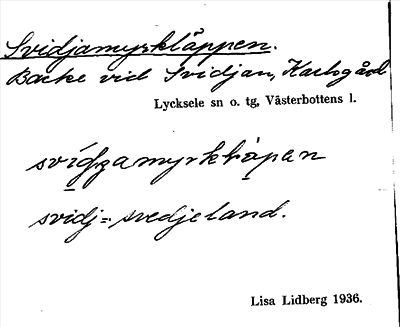 Svidjamyrkläppen.
Backe vid Svidjan, Karlsgård
Lycksele sn o. tg, Västerbottens l.
svidjamyrkläpan
svidj- = svedjeland.
Lisa Lidberg 1936.